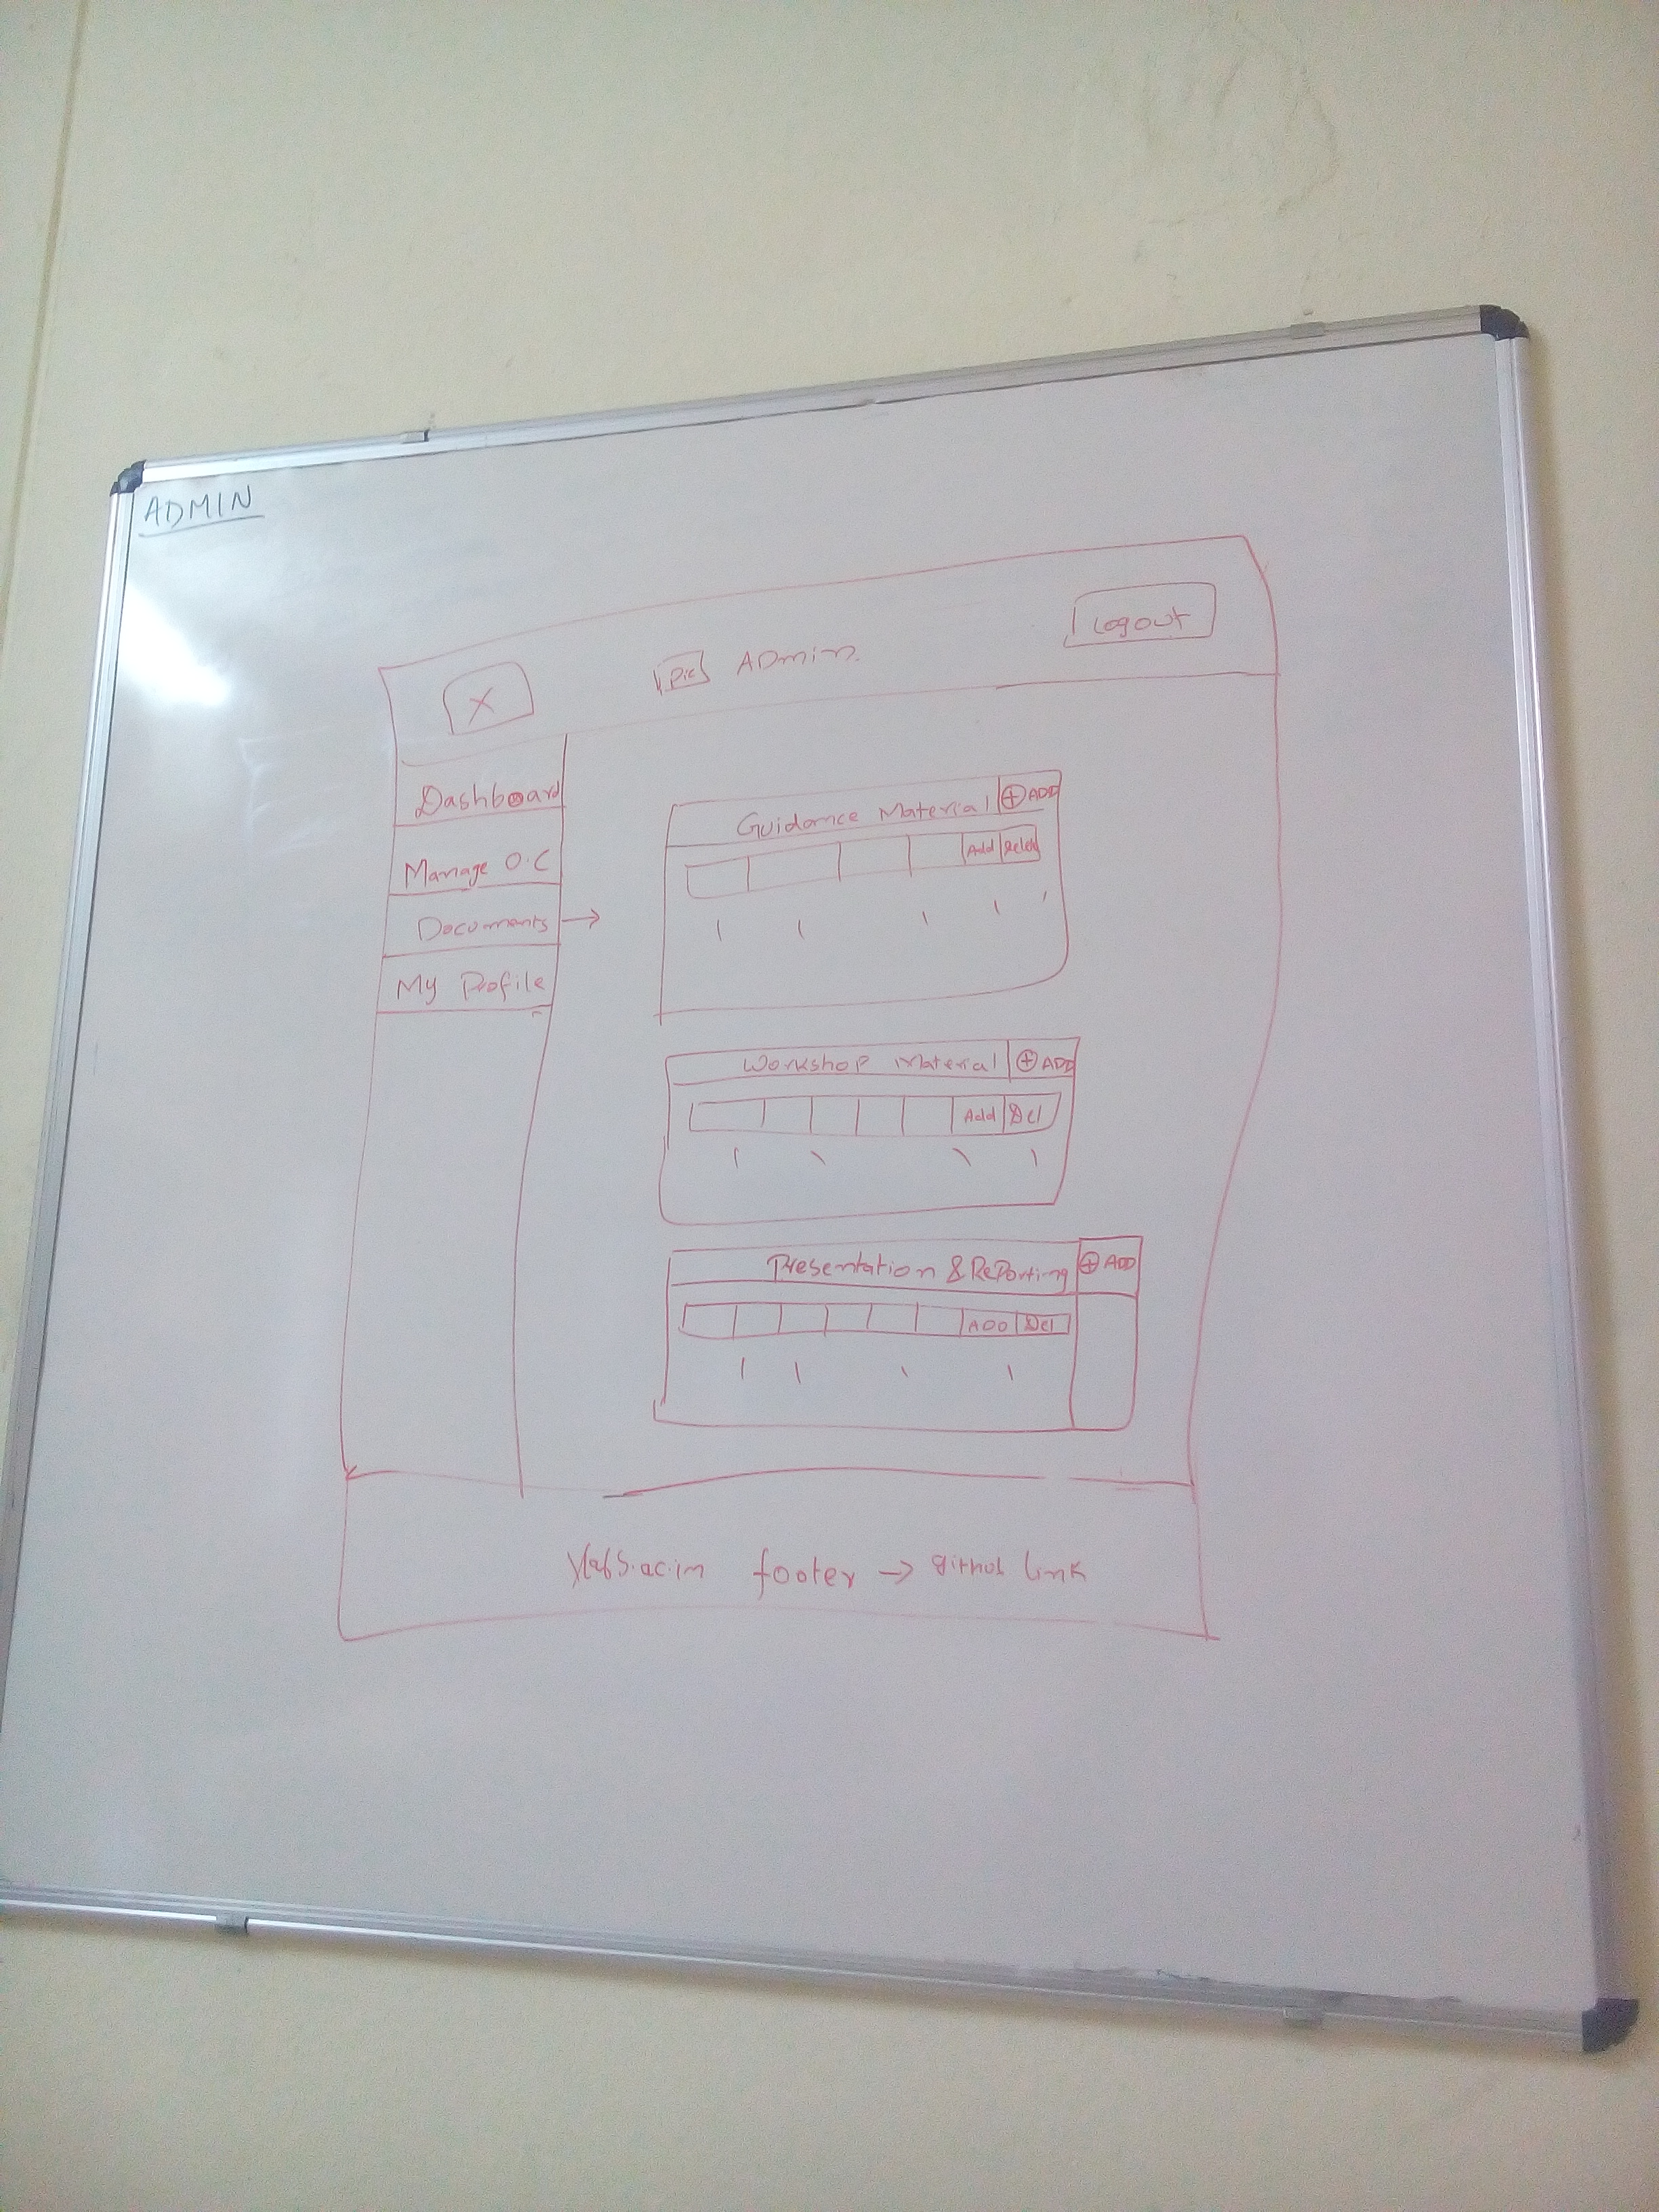 ADMIN
X
Pic ADmin.
Logout
Dashboard
Manage O.C
Documents →
My Profile
Guidance Material ⊕ ADD
Add Delet
Workshop Material ⊕ ADD
Add Del
Presentation & RePorting ⊕ ADD
ADD Del
footer → github link